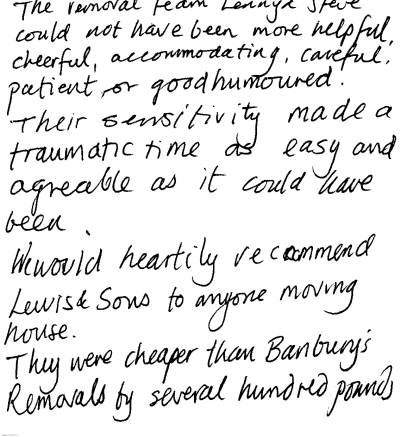 The removal team Lenny & Steve
could not have been more helpful,
cheerful, accommodating, careful,
patient, or good humoured.
Their sensitivity made a
traumatic time as easy and
agreeable as it could have
been.
We would heartily recommend
Lewis & Sons to anyone moving
house.
They were cheaper than Banbury's
Removals by several hundred pounds